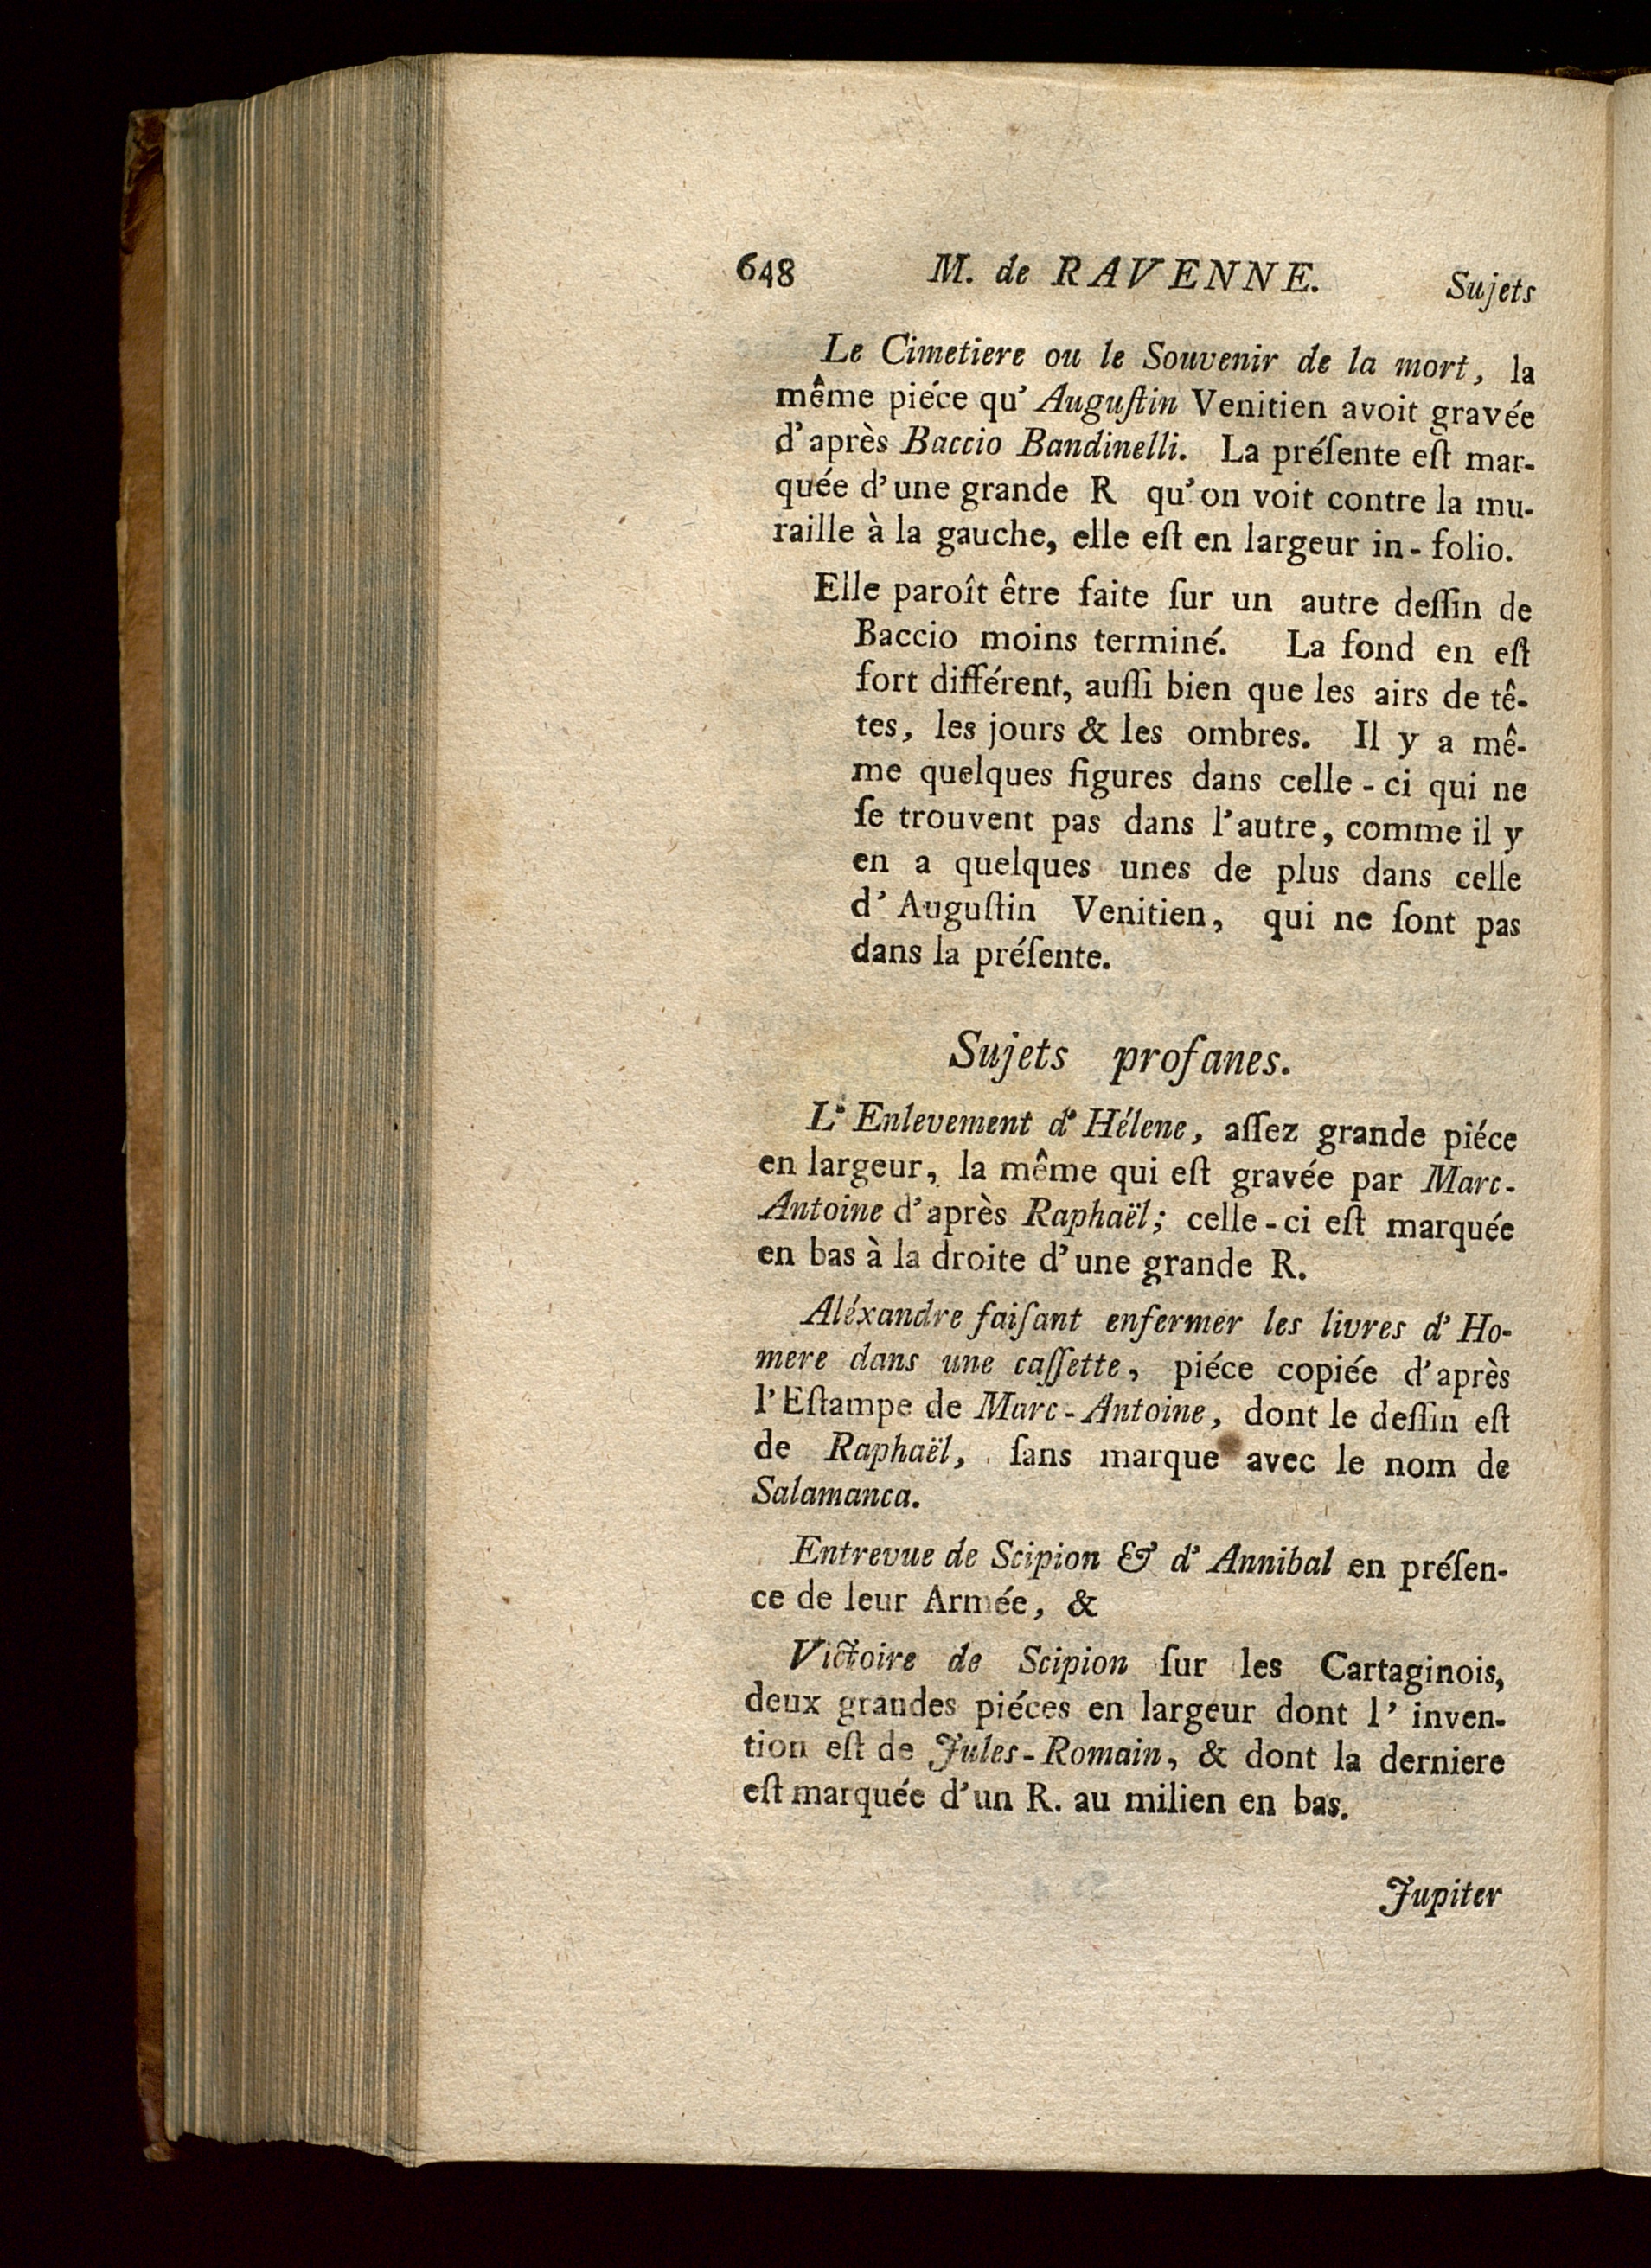 648 M. de RAVENNE. Sujets
Le Cimetiere ou le Souvenir de la mort, la
même piéce qu' Auguſtin Venitien avoit gravée
d'après Baccio Bandinelli. La préſente eſt mar-
quée d'une grande R qu'on voit contre la mu-
raille à la gauche, elle eſt en largeur in-folio.
Elle paroît être faite ſur un autre deſſin de
Baccio moins terminé. La fond en eſt
fort différent, auſſi bien que les airs de tê-
tes, les jours & les ombres. Il y a mê-
me quelques figures dans celle-ci qui ne
ſe trouvent pas dans l'autre, comme il y
en a quelques unes de plus dans celle
d'Auguſtin Venitien, qui ne ſont pas
dans la préſente.
Sujets profanes.
L'Enlevement d'Hélene, aſſez grande piéce
en largeur, la même qui eſt gravée par Marc-
Antoine d'après Raphaël; celle-ci eſt marquée
en bas à la droite d'une grande R.
Aléxandre faiſant enfermer les livres d'Ho-
mere dans une caſſette, piéce copiée d'après
l'Eſtampe de Marc-Antoine, dont le deſſin eſt
de Raphaël, ſans marque avec le nom de
Salamanca.
Entrevue de Scipion & d'Annibal en préſen-
ce de leur Armée, &
Victoire de Scipion ſur les Cartaginois,
deux grandes piéces en largeur dont l'inven-
tion eſt de Jules-Romain, & dont la derniere
eſt marquée d'un R. au milien en bas.
Jupiter